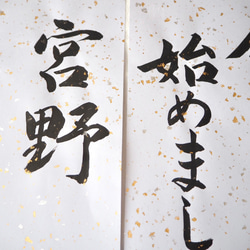 始めまし
宮野